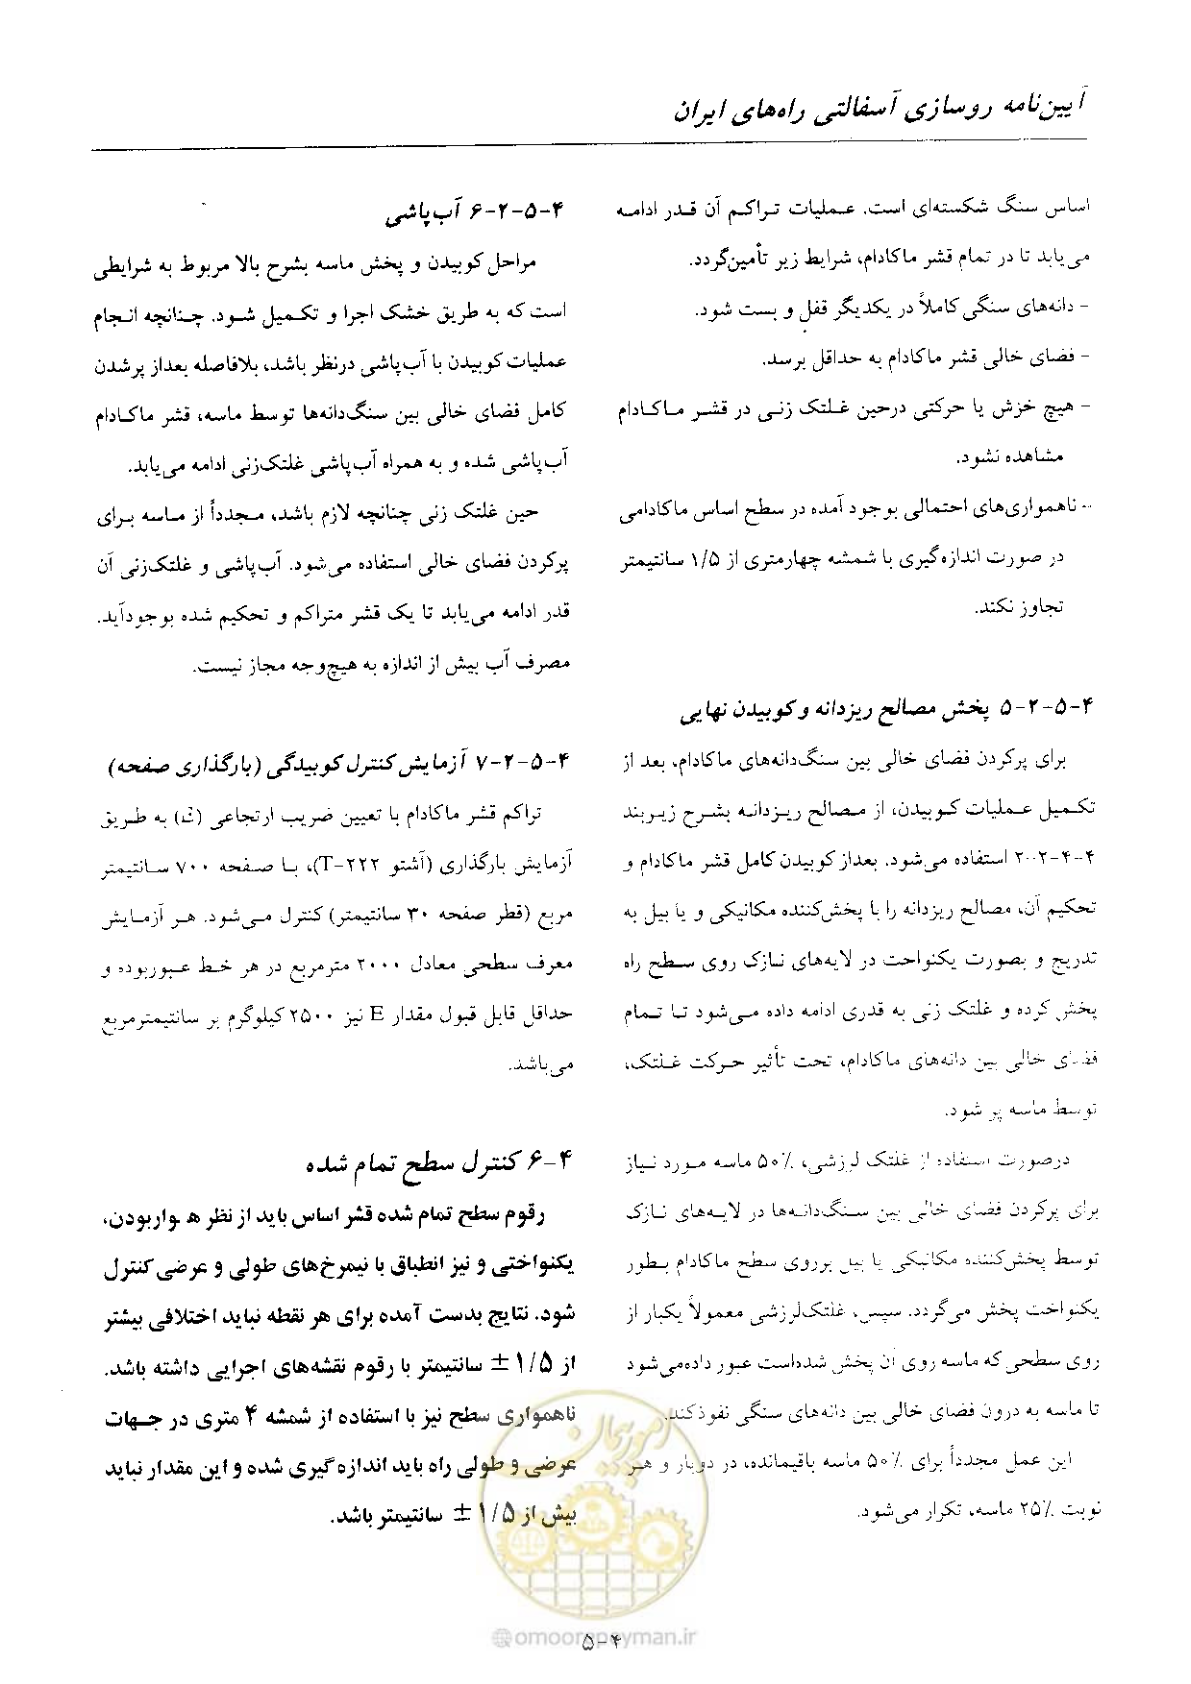 آیین‌نامه روسازی آسفالتی راه‌های ایران
اساس سنگ شکسته‌ای است. عملیات تراکم آن قدر ادامه
می‌یابد تا در تمام قشر ماکادام، شرایط زیر تأمین‌گردد.
- دانه‌های سنگی کاملاً در یکدیگر قفل و بست شود.
- فضای خالی قشر ماکادام به حداقل برسد.
- هیچ خزش یا حرکتی درحین غلتک زنی در قشر ماکادام
مشاهده نشود.
- ناهمواری‌های احتمالی بوجود آمده در سطح اساس ماکادامی
در صورت اندازه‌گیری با شمشه چهارمتری از ۱/۵ سانتیمتر
تجاوز نکند.
۴-۵-۲-۵ پخش مصالح ریزدانه و کوبیدن نهایی
برای پرکردن فضای خالی بین سنگ‌دانه‌های ماکادام، بعد از
تکمیل عملیات کوبیدن، از مصالح ریزدانه بشرح زیربند
۴-۴-۲-۲ استفاده می‌شود. بعداز کوبیدن کامل قشر ماکادام و
تحکیم آن، مصالح ریزدانه را با پخش‌کننده مکانیکی و یا بیل به
تدریج و بصورت یکنواخت در لایه‌های نازک روی سطح راه
پخش کرده و غلتک زنی به قدری ادامه داده می‌شود تا تمام
فضای خالی بین دانه‌های ماکادام، تحت تأثیر حرکت غلتک،
توسط ماسه پر شود.
درصورت استفاده از غلتک لرزشی، ۵۰٪ ماسه مورد نیاز
برای پرکردن فضای خالی بین سنگ‌دانه‌ها در لایه‌های نازک
توسط پخش‌کننده مکانیکی یا بیل برروی سطح ماکادام بطور
یکنواخت پخش می‌گردد. سپس، غلتک‌لرزشی معمولاً یکبار از
روی سطحی که ماسه روی آن پخش شده‌است عبور داده‌می‌شود
تا ماسه به درون فضای خالی بین دانه‌های سنگی نفوذکند.
این عمل مجدداً برای ۵۰٪ ماسه باقیمانده، در دوبار و هر
نوبت ۲۵٪ ماسه، تکرار می‌شود.
۴-۵-۲-۶ آب‌پاشی
مراحل کوبیدن و پخش ماسه بشرح بالا مربوط به شرایطی
است که به طریق خشک اجرا و تکمیل شود. چنانچه انجام
عملیات کوبیدن با آب‌پاشی درنظر باشد، بلافاصله بعداز پرشدن
کامل فضای خالی بین سنگ‌دانه‌ها توسط ماسه، قشر ماکادام
آب‌پاشی شده و به همراه آب‌پاشی غلتک‌زنی ادامه می‌یابد.
حین غلتک زنی چنانچه لازم باشد، مجدداً از ماسه برای
پرکردن فضای خالی استفاده می‌شود. آب‌پاشی و غلتک‌زنی آن
قدر ادامه می‌یابد تا یک قشر متراکم و تحکیم شده بوجودآید.
مصرف آب بیش از اندازه به هیچ‌وجه مجاز نیست.
۴-۵-۲-۷ آزمایش کنترل کوبیدگی (بارگذاری صفحه)
تراکم قشر ماکادام با تعیین ضریب ارتجاعی (E) به طریق
آزمایش بارگذاری (آشتو T-۲۲۲)، با صفحه ۷۰۰ سانتیمتر
مربع (قطر صفحه ۳۰ سانتیمتر) کنترل می‌شود. هر آزمایش
معرف سطحی معادل ۲۰۰۰ مترمربع در هر خط عبوربوده و
حداقل قابل قبول مقدار E نیز ۲۵۰۰ کیلوگرم بر سانتیمترمربع
می‌باشد.
۴-۶ کنترل سطح تمام شده
رقوم سطح تمام شده قشر اساس باید از نظر هواربودن،
یکنواختی و نیز انطباق با نیمرخ‌های طولی و عرضی کنترل
شود. نتایج بدست آمده برای هر نقطه نباید اختلافی بیشتر
از ۱/۵ ± سانتیمتر با رقوم نقشه‌های اجرایی داشته باشد.
ناهمواری سطح نیز با استفاده از شمشه ۴ متری در جهات
عرضی و طولی راه باید اندازه‌گیری شده و این مقدار نباید
بیش از ۱/۵ ± سانتیمتر باشد.
امور پیمان
@omoorepeyman.ir
۴-۵